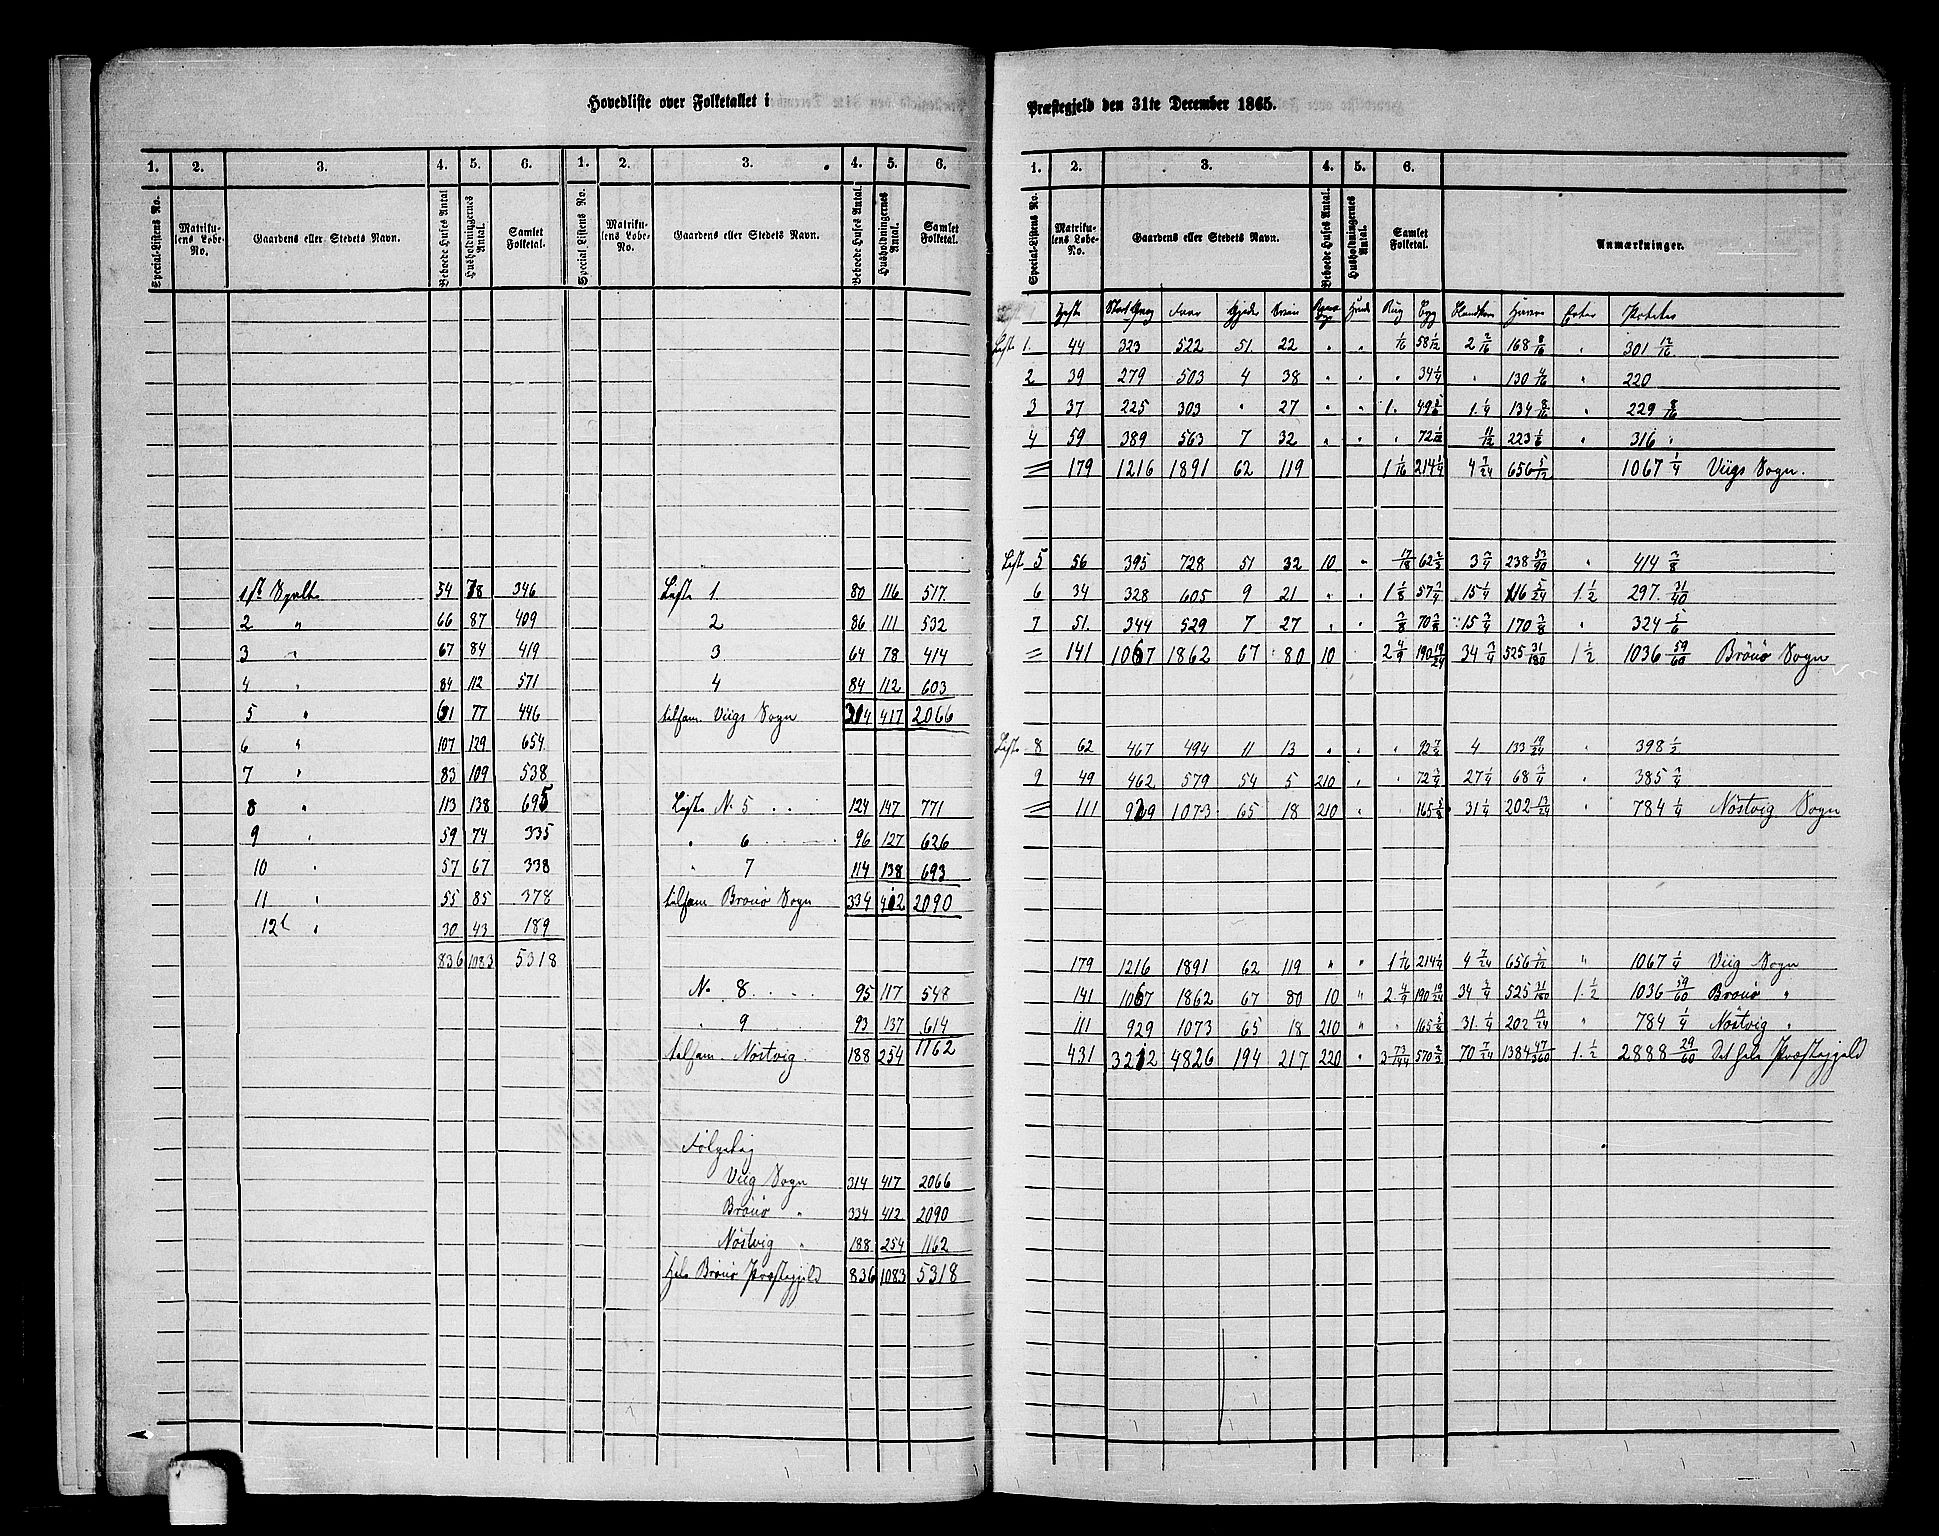 Hovedliste over Folketallet i
1. 2. 3. 4. 5. 6. 1. 2. 3. 4. 5. 6.
Special-Listens No. Matrikulens Løbe-No. Gaardens eller Stedets Navn. Beboede Huses Antal Husholdningernes Antal. Samlet Folketal. Special Listens No. Matrikulens Løbe-No. Gaardens eller Stedets Navn. Beboede Huses Antal. Husholdningernes Antal Samlet Folketal.
1ste Spalte 54 78 346 Liste 1. 80 116 517.
2 " 66 87 409 2 86 111 532
3 " 67 84 419 3 64 78 414
4 " 84 112 571 4 84 112 603
5 " 61 77 446 tilsam. Viigs Sogn 314 417 2066
6 " 107 129 654
7 " 83 109 538
8 " 113 138 695 Liste No 5 124 147 771
9 " 59 74 335 " 6 96 127 626
10 " 57 67 338 " 7 114 138 693
11 " 55 85 378 tilsam Brönö Sogn 334 412 2090
12te " 30 43 189
836 1083 5318
No 8 95 117 548
" 9 93 137 614
tilsam. Nöstvig 188 254 1162
Følgelig
Viig Sogn 314 417 2066
Brönö " 334 412 2090
Nöstvig " 188 254 1162
Hele Brönö Præstegjeld 836 1083 5318
Præstegjeld den 31te December 1865.
1. 2. 3. 4. 5. 6.
Special-Listens No. Matrikulens Løbe-No. Gaardens eller Stedets Navn. Beboede Huses Antal. Husholdningernes Antal. Samlet Folketal. Anmærkninger.
Heste Stort Qvæg Faar Gjeder Sviin Rensdyr Hvede Rug Byg Blandkorn Havre Erter Poteter
Liste 1. 44 323 522 51. 22 " " 1/16 58 1/12 2 2/16 168 8/16 " 301 12/16
2 39 279 503 4 38 " " " 34 1/4 " 130 4/16 " 220
3 37 225 303 " 27 " " 1. 49 2/6 1.1/4 134 8/16 229 8/16
4 59 389 563 7 32 " " " 72 1/12 11/12 223 1/6 " 316 "
179 1216 1891 62 119 1 1/16 214 1/4 4 7/24 656 5/12 1067 1/4 Viigs Sogn.
Liste 5 56 395 728 51 32 10 " 17/18 62 2/3 3 3/4 238 53/90 " 414 3/8
6 34 328 605 9 21 " " 1 1/8 57 3/4 15 1/4 116 5/24 1.1/2 297. 31/40
7 51. 344 529 7 27 " " 3/8 70 3/8 15 3/4 170 3/8 " 324 5/6
141 1067 1862 67 80 10 2 4/9 190 19/24 34 3/4 525 31/180 1 1/2 1036 59/60 Brönö Sogn
Liste 8 62 467 494 11 13 " " " 92 7/8 4 133 19/24 " 398 1/2
9 49 462 579 54 5 210 " " 72 3/4 27 1/4 68 3/4 385 3/4
111 929 1073 65 18 210 " " 165 5/8 31 1/4 202 13/24 " 784 1/4 Nöstvig Sogn
179 1216 1891 62 119 " " 1 1/16 214 1/4 4 7/24 656 5/12 " 1067 1/4 Viig Sogn
141 1067 1862 67 80 10 " 2 4/9 190 19/24 34 3/4 525 31/180 1.1/2 1036 59/60 Brönö "
111 929 1073 65 18 210 " " 165 5/8 31. 1/4 202 13/24 " 784 1/4 Nöstvig "
431 3212 4826 194 217 220 " 3 73/144 570 2/3 70 7/24 1384 47/360 1. 1/2 2888 29/60 Det hele Præstegjeld